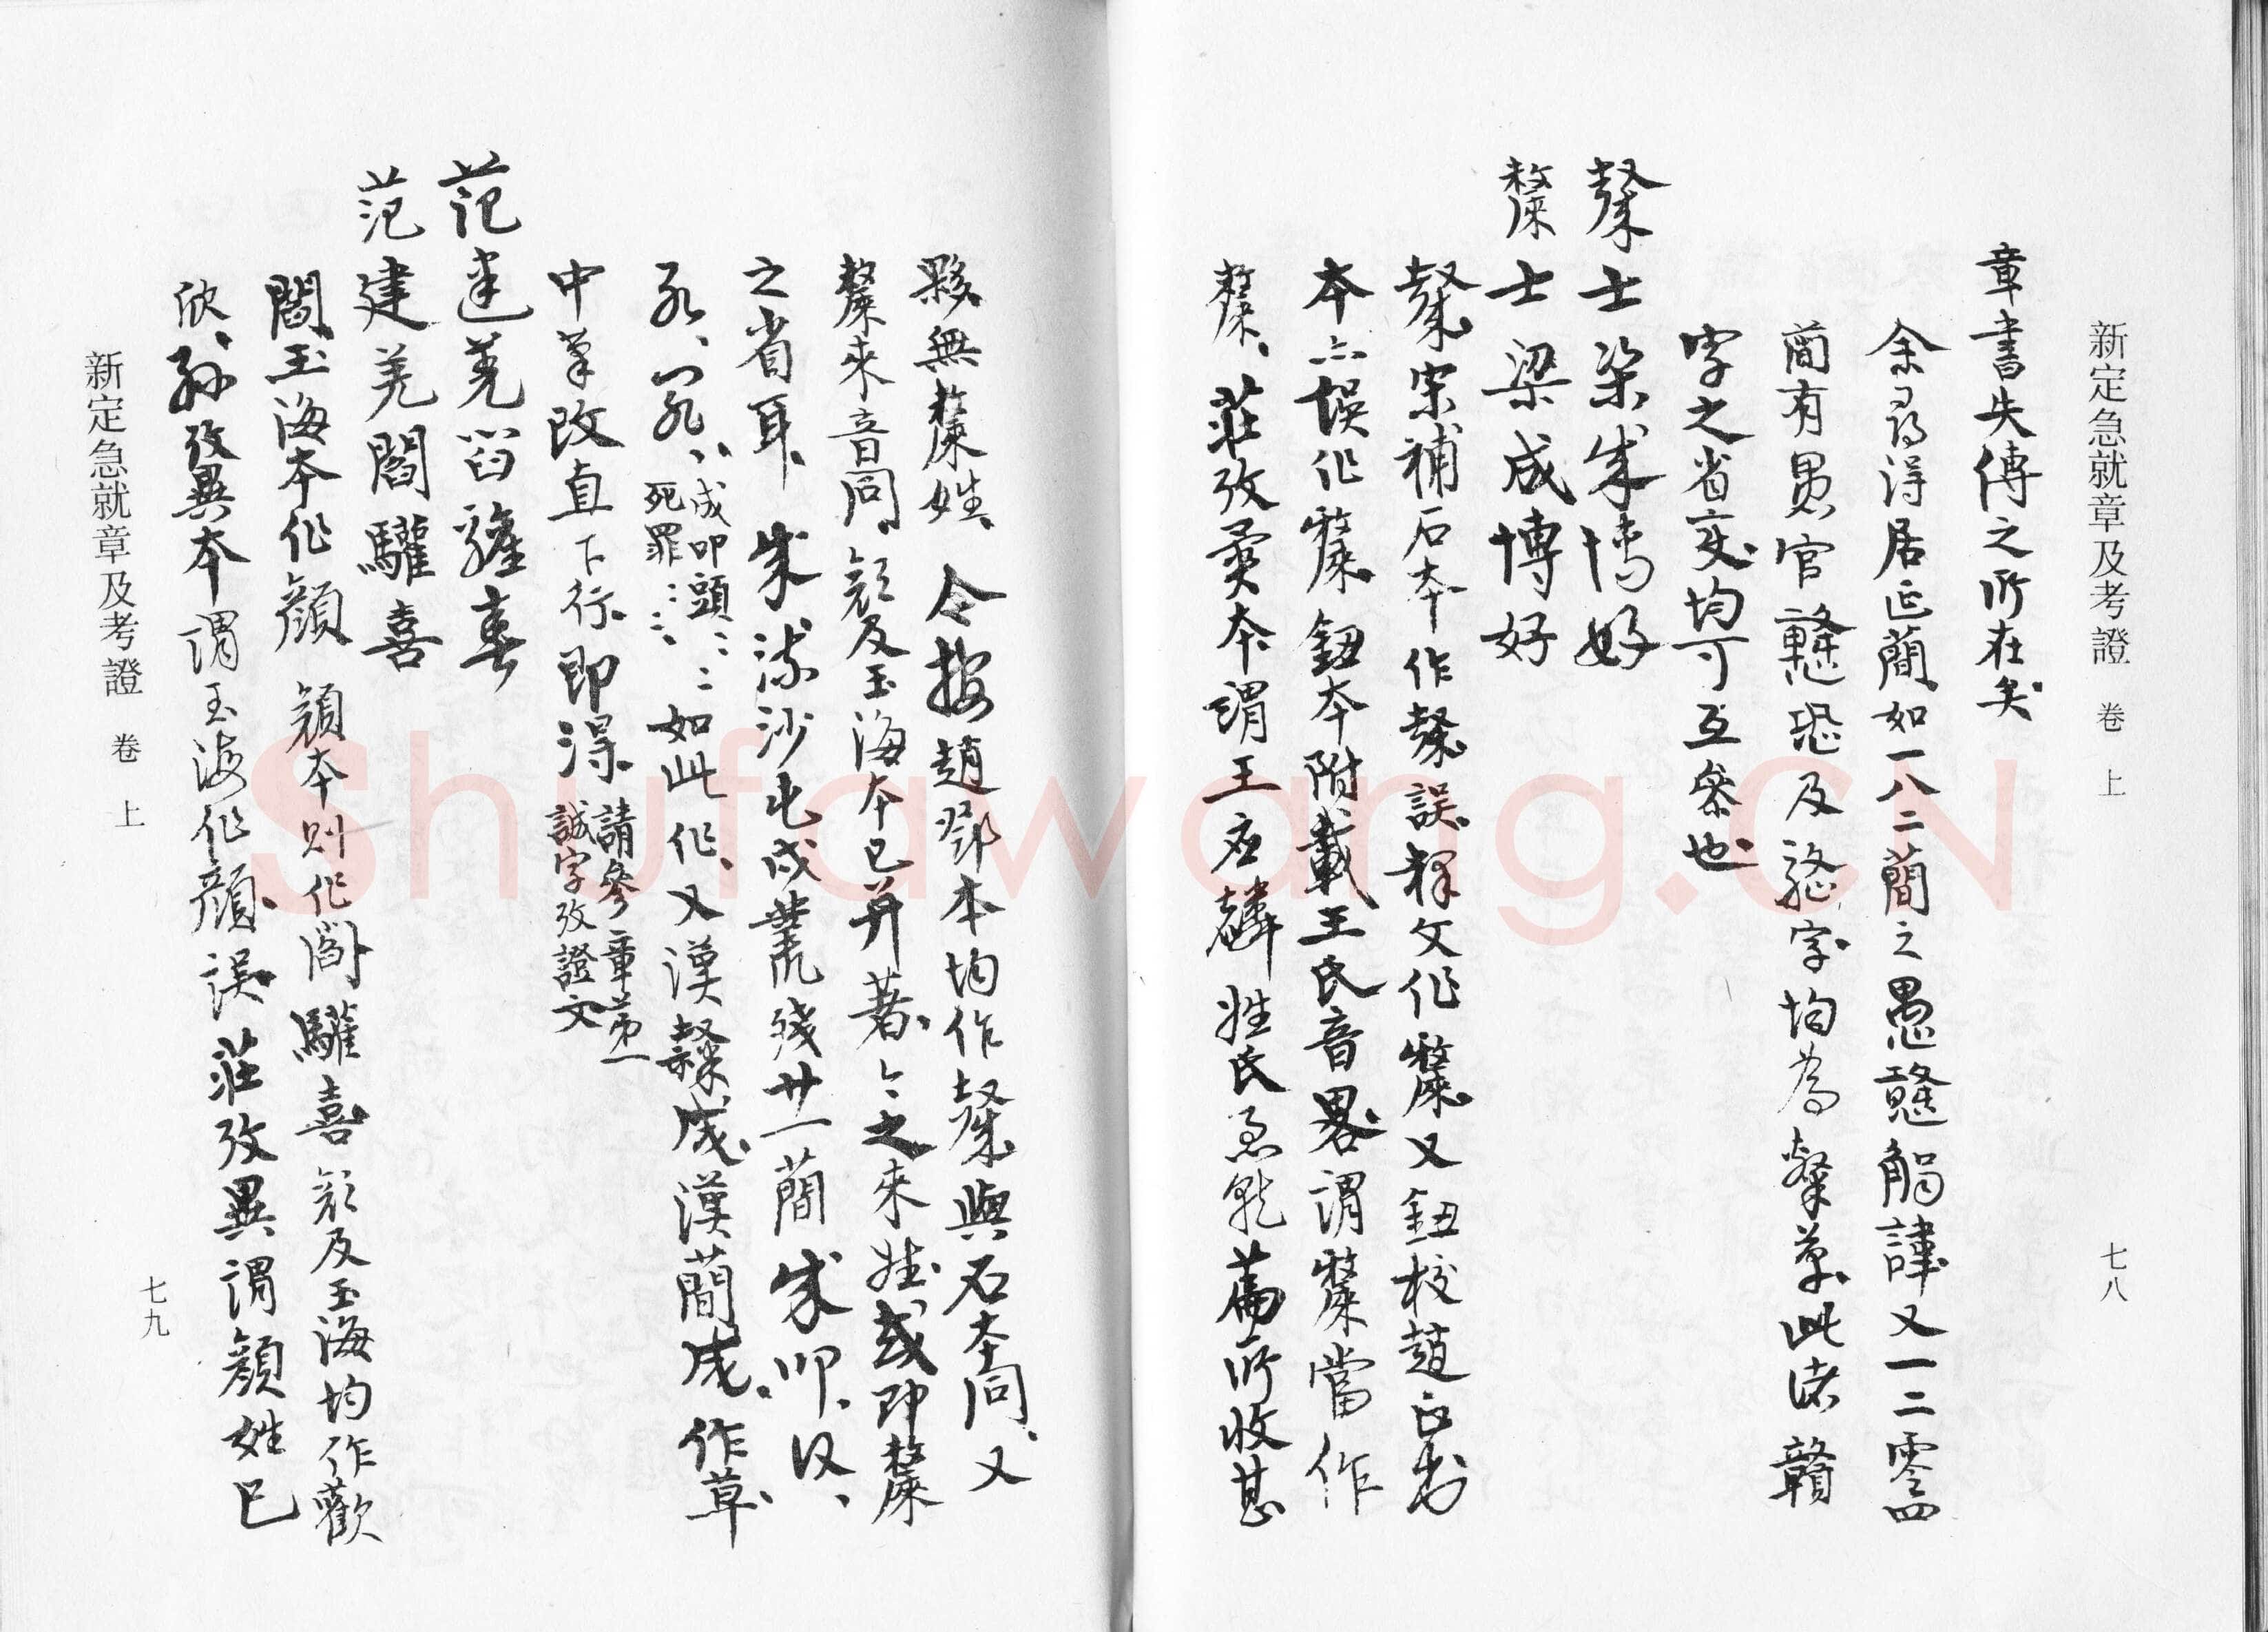 新定急就章及考證 卷上 七八
章書失傳之所在矣
余尋得居延簡如一八二簡之愚戇觸諱又一二零四
簡有愚官戇恐及 字均為 草此諸贛
字之省变均可互參也
士梁成博好
漦士梁成博好
宋補石本作 誤释文作 又鈕校趙正书
本亦误作 鈕本附載王氏音畧謂 當作
漦莊攷異本謂王应麟姓氏急就篇所收甚
夥無漦姓今按趙鄧本均作 與石本同又
漦來音同顏及玉海本已并著今之來姓或即漦
之省耳 成流沙屯戍叢残廿一簡成叩
成叩頭
死罪
如此作又漢隸成漢簡成作草
中笔改直下行即得
請參章第一
誠字攷證文
范建羌閻驩喜
范建羌閻驩喜
閻玉海本作顏 顏本則作閻驩喜顏及玉海均作歡
欣孙攷異本謂玉海作顏误莊攷異謂顏姓已
新定急就章及考證 卷上 七九
Shufawang.CN